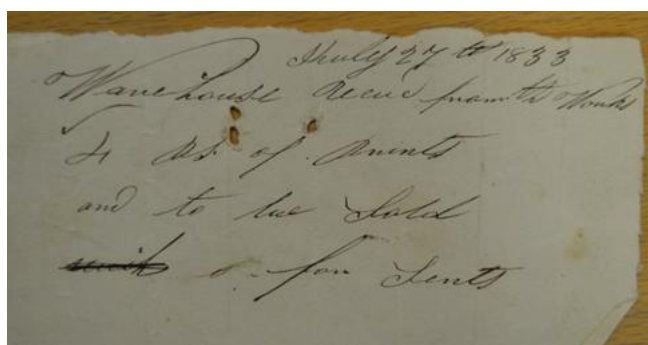 July 27th 1833
Warehouse Recud from the Works
4 of Prints
and to be Sold
for Sents